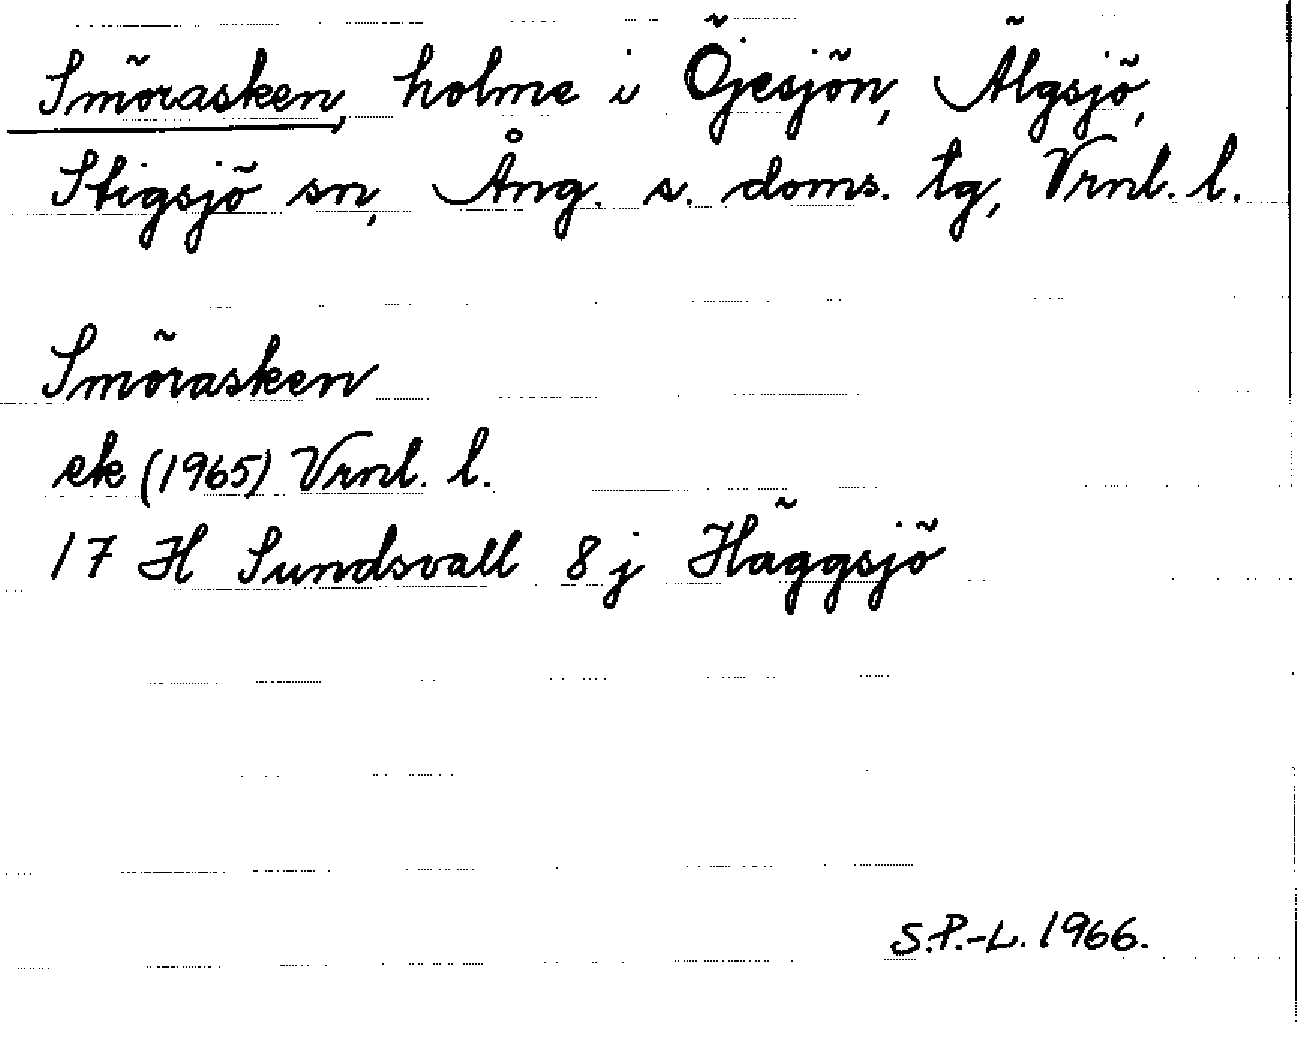 Smörasken, holme i Öjesjön, Älgsjö,
Stigsjö sn, Ång. s. doms. tg, Vrnl. l.
Smörasken
ek (1965) Vrnl. l.
17 H Sundsvall 8 j Häggsjö
S.P.-L. 1966.